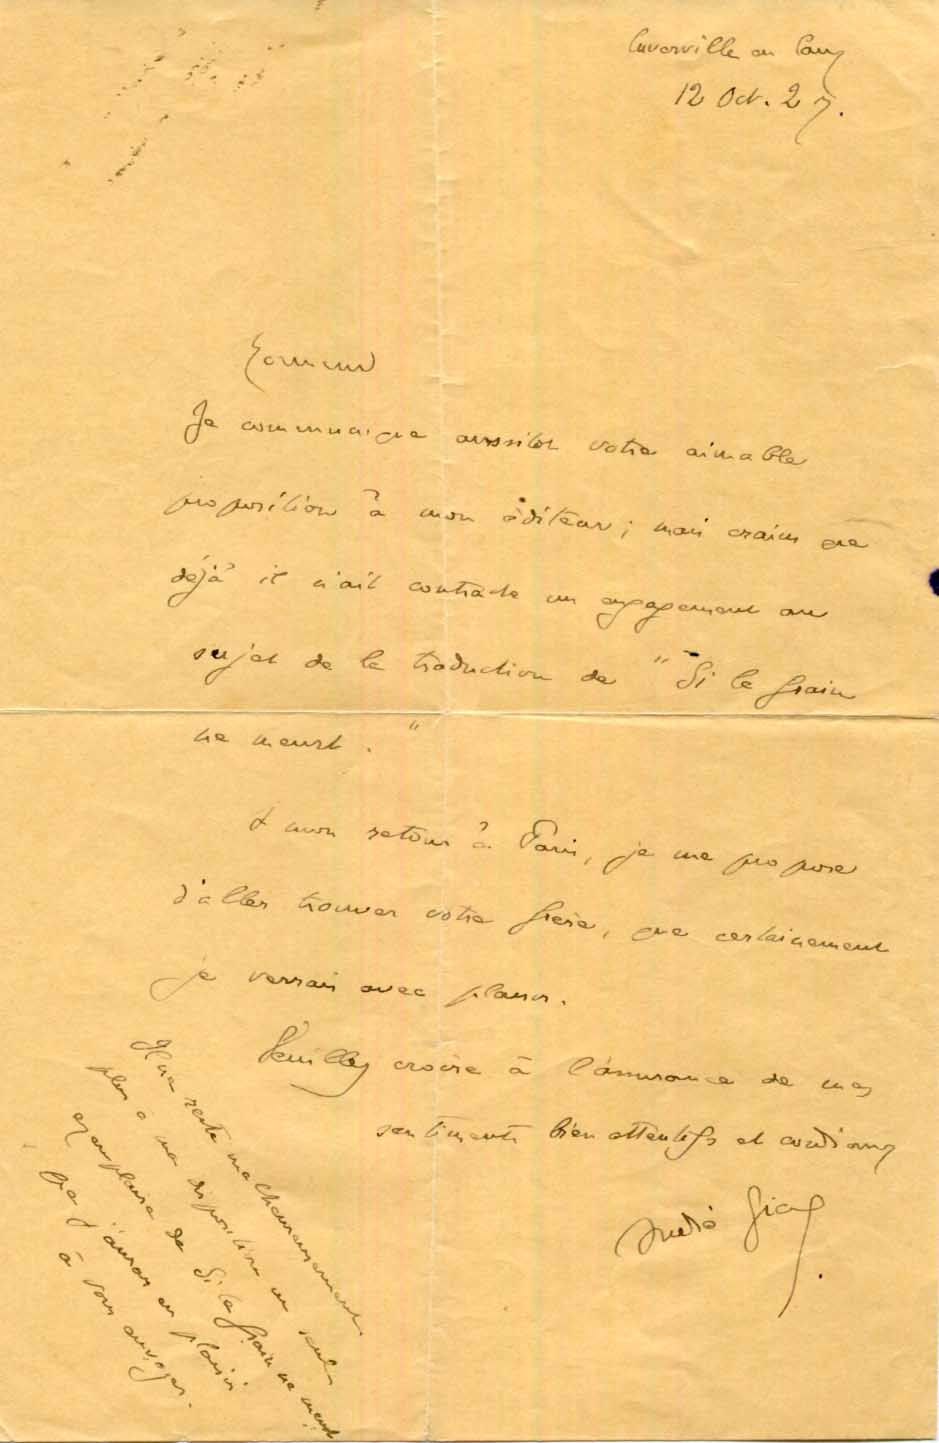 Cuverville en Caux
12 Oct. 27.
Monsieur
Je communique aussitôt votre aimable
proposition à mon éditeur ; mais crains que
déjà il n'ait contracté un engagement au
sujet de la traduction de "Si le grain
ne meurt."
A mon retour à Paris, je me propose
d'aller trouver votre frère, que certainement
je verrai avec plaisir.
Veuillez croire à l'assurance de mes
sentiments bien attentifs et cordiaux
André Gide.
Il ne reste malheureusement
plus à ma disposition un seul
exemplaire de Si le grain ne meurt
que j'aurais eu plaisir
à vous envoyer.